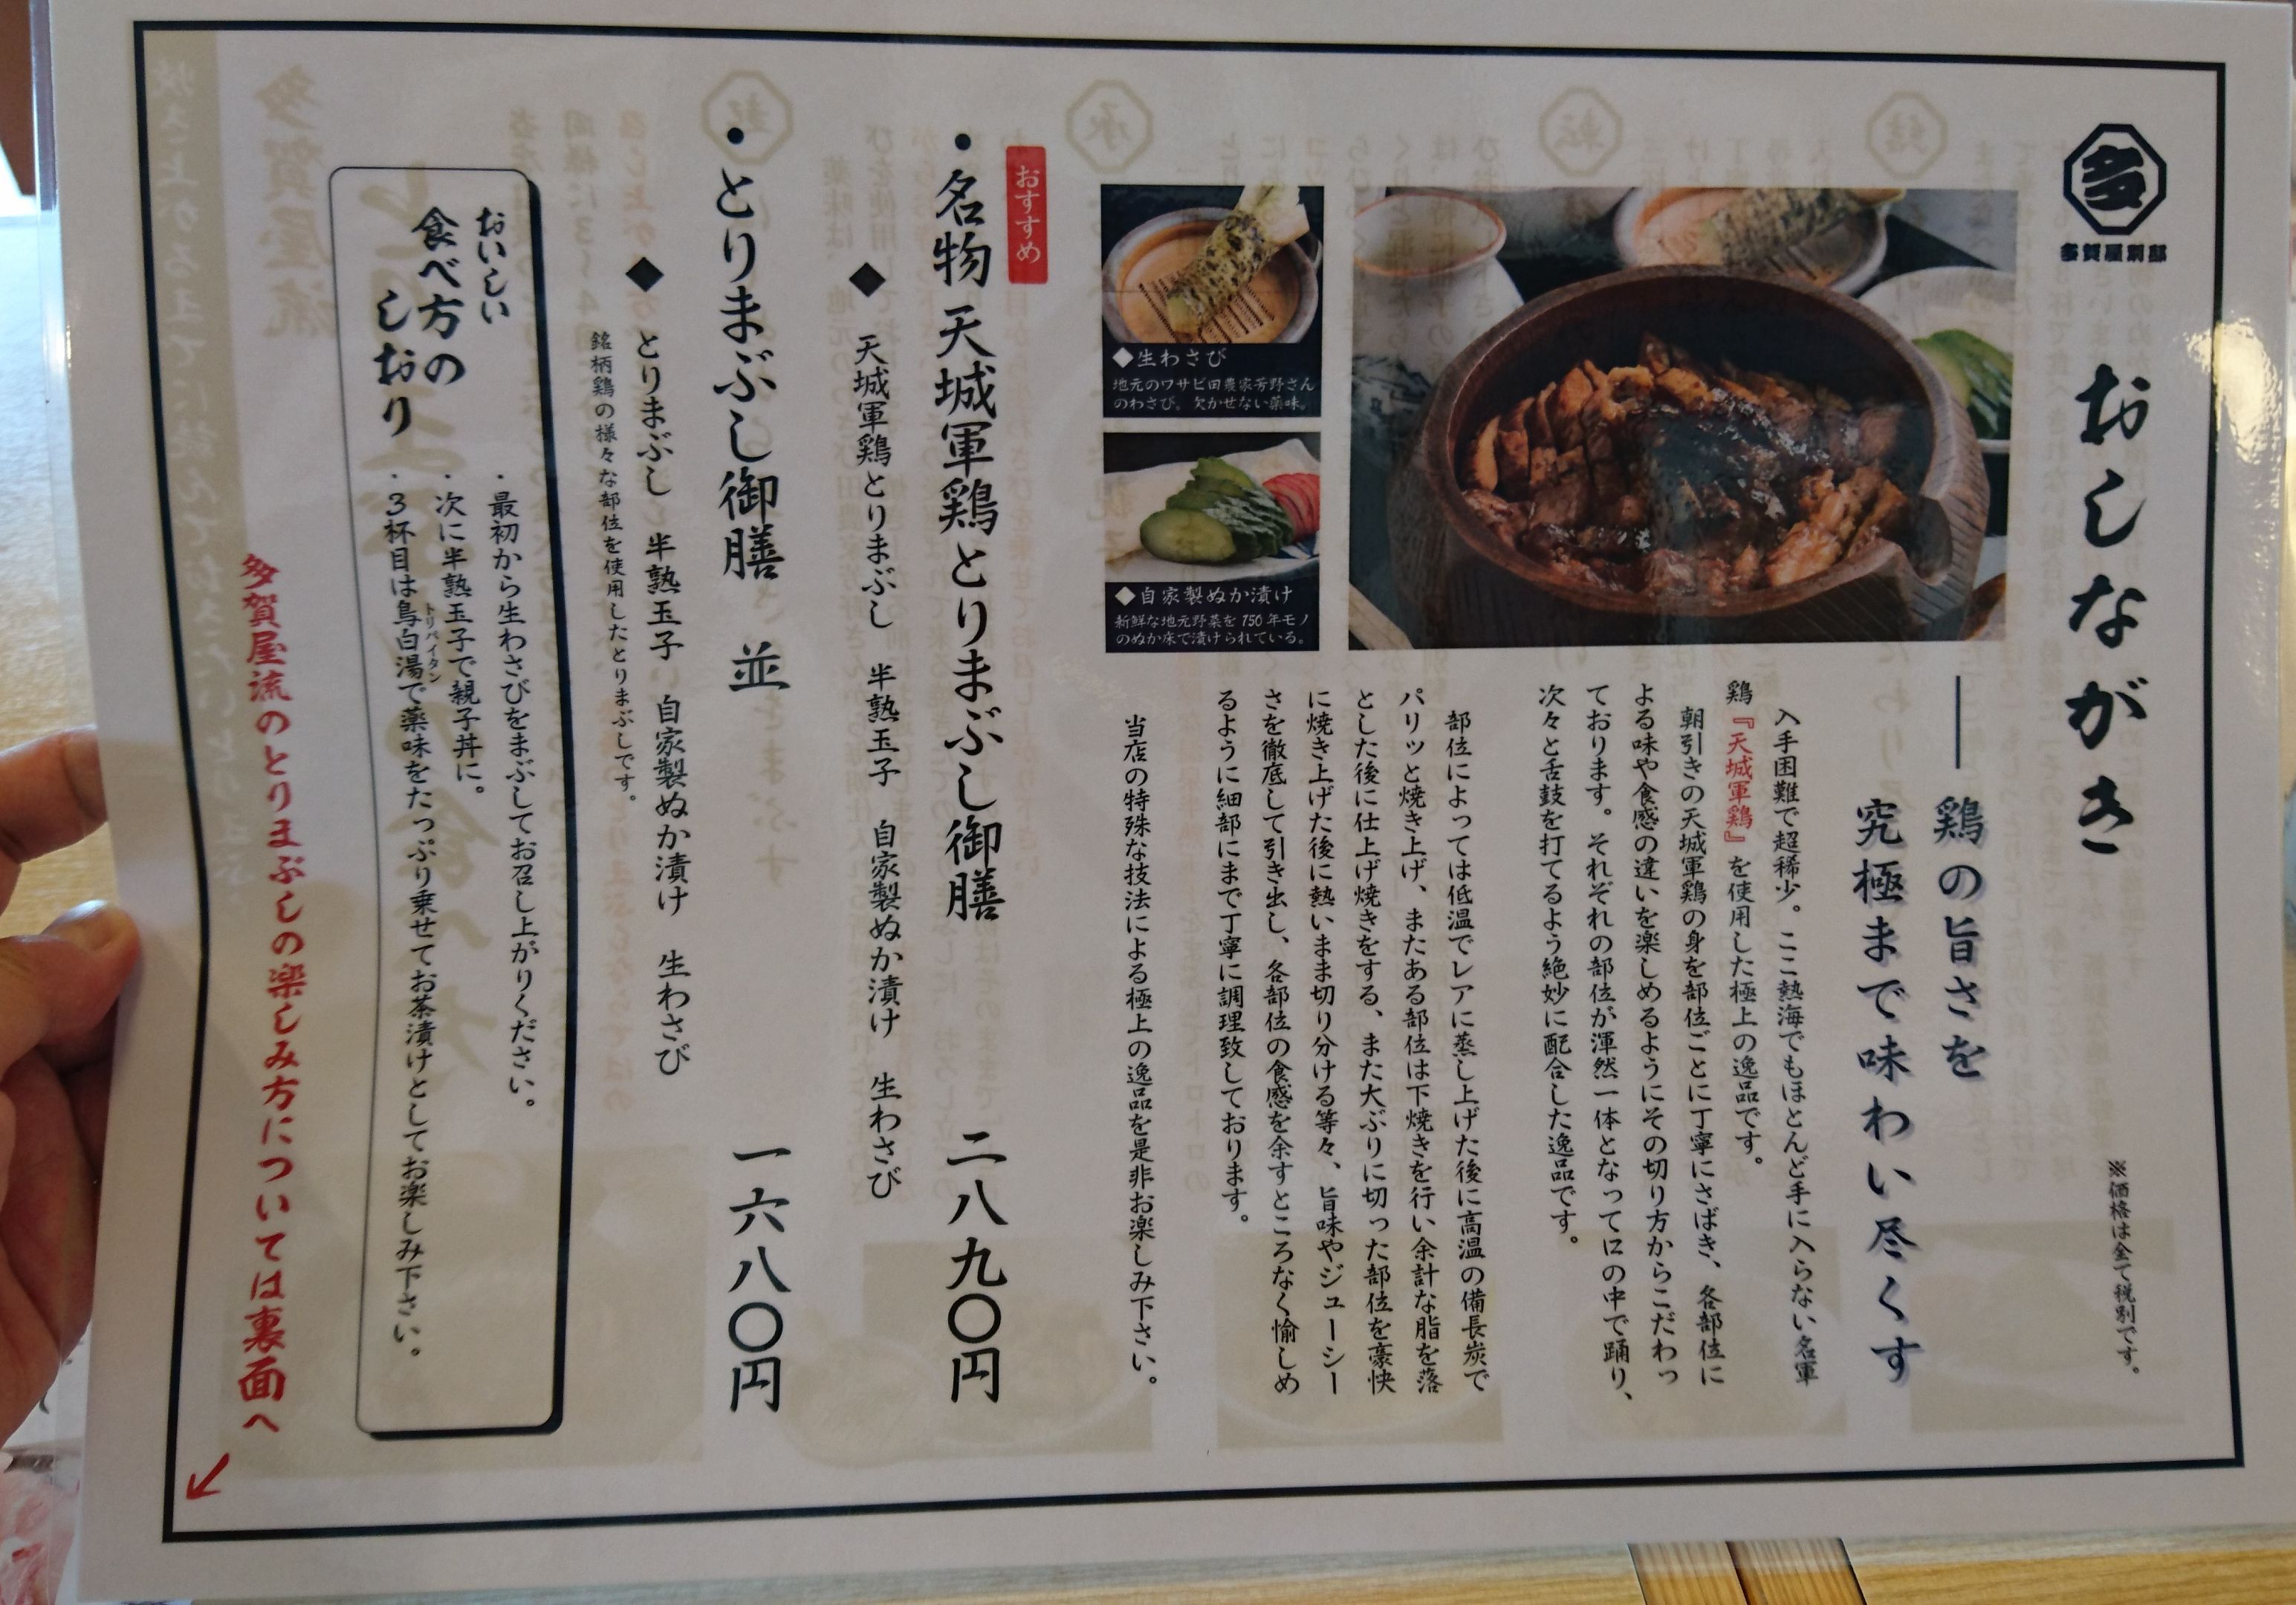 多
多賀屋別邸
おしながき
※価格は全て税別です。
鶏の旨さを
究極まで味わい尽くす
入手困難で超稀少。ここ熱海でもほとんど手に入らない名軍
鶏『天城軍鶏』を使用した極上の逸品です。
朝引きの天城軍鶏の身を部位ごとに丁寧にさばき、各部位に
よる味や食感の違いを楽しめるようにその切り方からこだわっ
ております。それぞれの部位が渾然一体となって口の中で踊り、
次々と舌鼓を打てるよう絶妙に配合した逸品です。
部位によっては低温でレアに蒸し上げた後に高温の備長炭で
パリッと焼き上げ、またある部位は下焼きを行い余計な脂を落
とした後に仕上げ焼きをする、また大ぶりに切った部位を豪快
に焼き上げた後に熱いまま切り分ける等々、旨味やジューシー
さを徹底して引き出し、各部位の食感を余すところなく愉しめ
るように細部にまで丁寧に調理致しております。
当店の特殊な技法による極上の逸品を是非お楽しみ下さい。
◆生わさび
地元のワサビ田農家芳野さん
のわさび。欠かせない薬味。
◆自家製ぬか漬け
新鮮な地元野菜を150年モノ
のぬか床で漬けられている。
おすすめ
・名物 天城軍鶏とりまぶし御膳 二八九〇円
◆ 天城軍鶏とりまぶし 半熟玉子 自家製ぬか漬け 生わさび
・とりまぶし御膳 並 一六八〇円
◆ とりまぶし 半熟玉子 自家製ぬか漬け 生わさび
銘柄鶏の様々な部位を使用したとりまぶしです。
おいしい
食べ方の
しおり
・最初から生わさびをまぶしてお召し上がりください。
・次に半熟玉子で親子丼に。
トリパイタン
・3杯目は鳥白湯で薬味をたっぷり乗せてお茶漬けとしてお楽しみ下さい。
多賀屋流のとりまぶしの楽しみ方については裏面へ